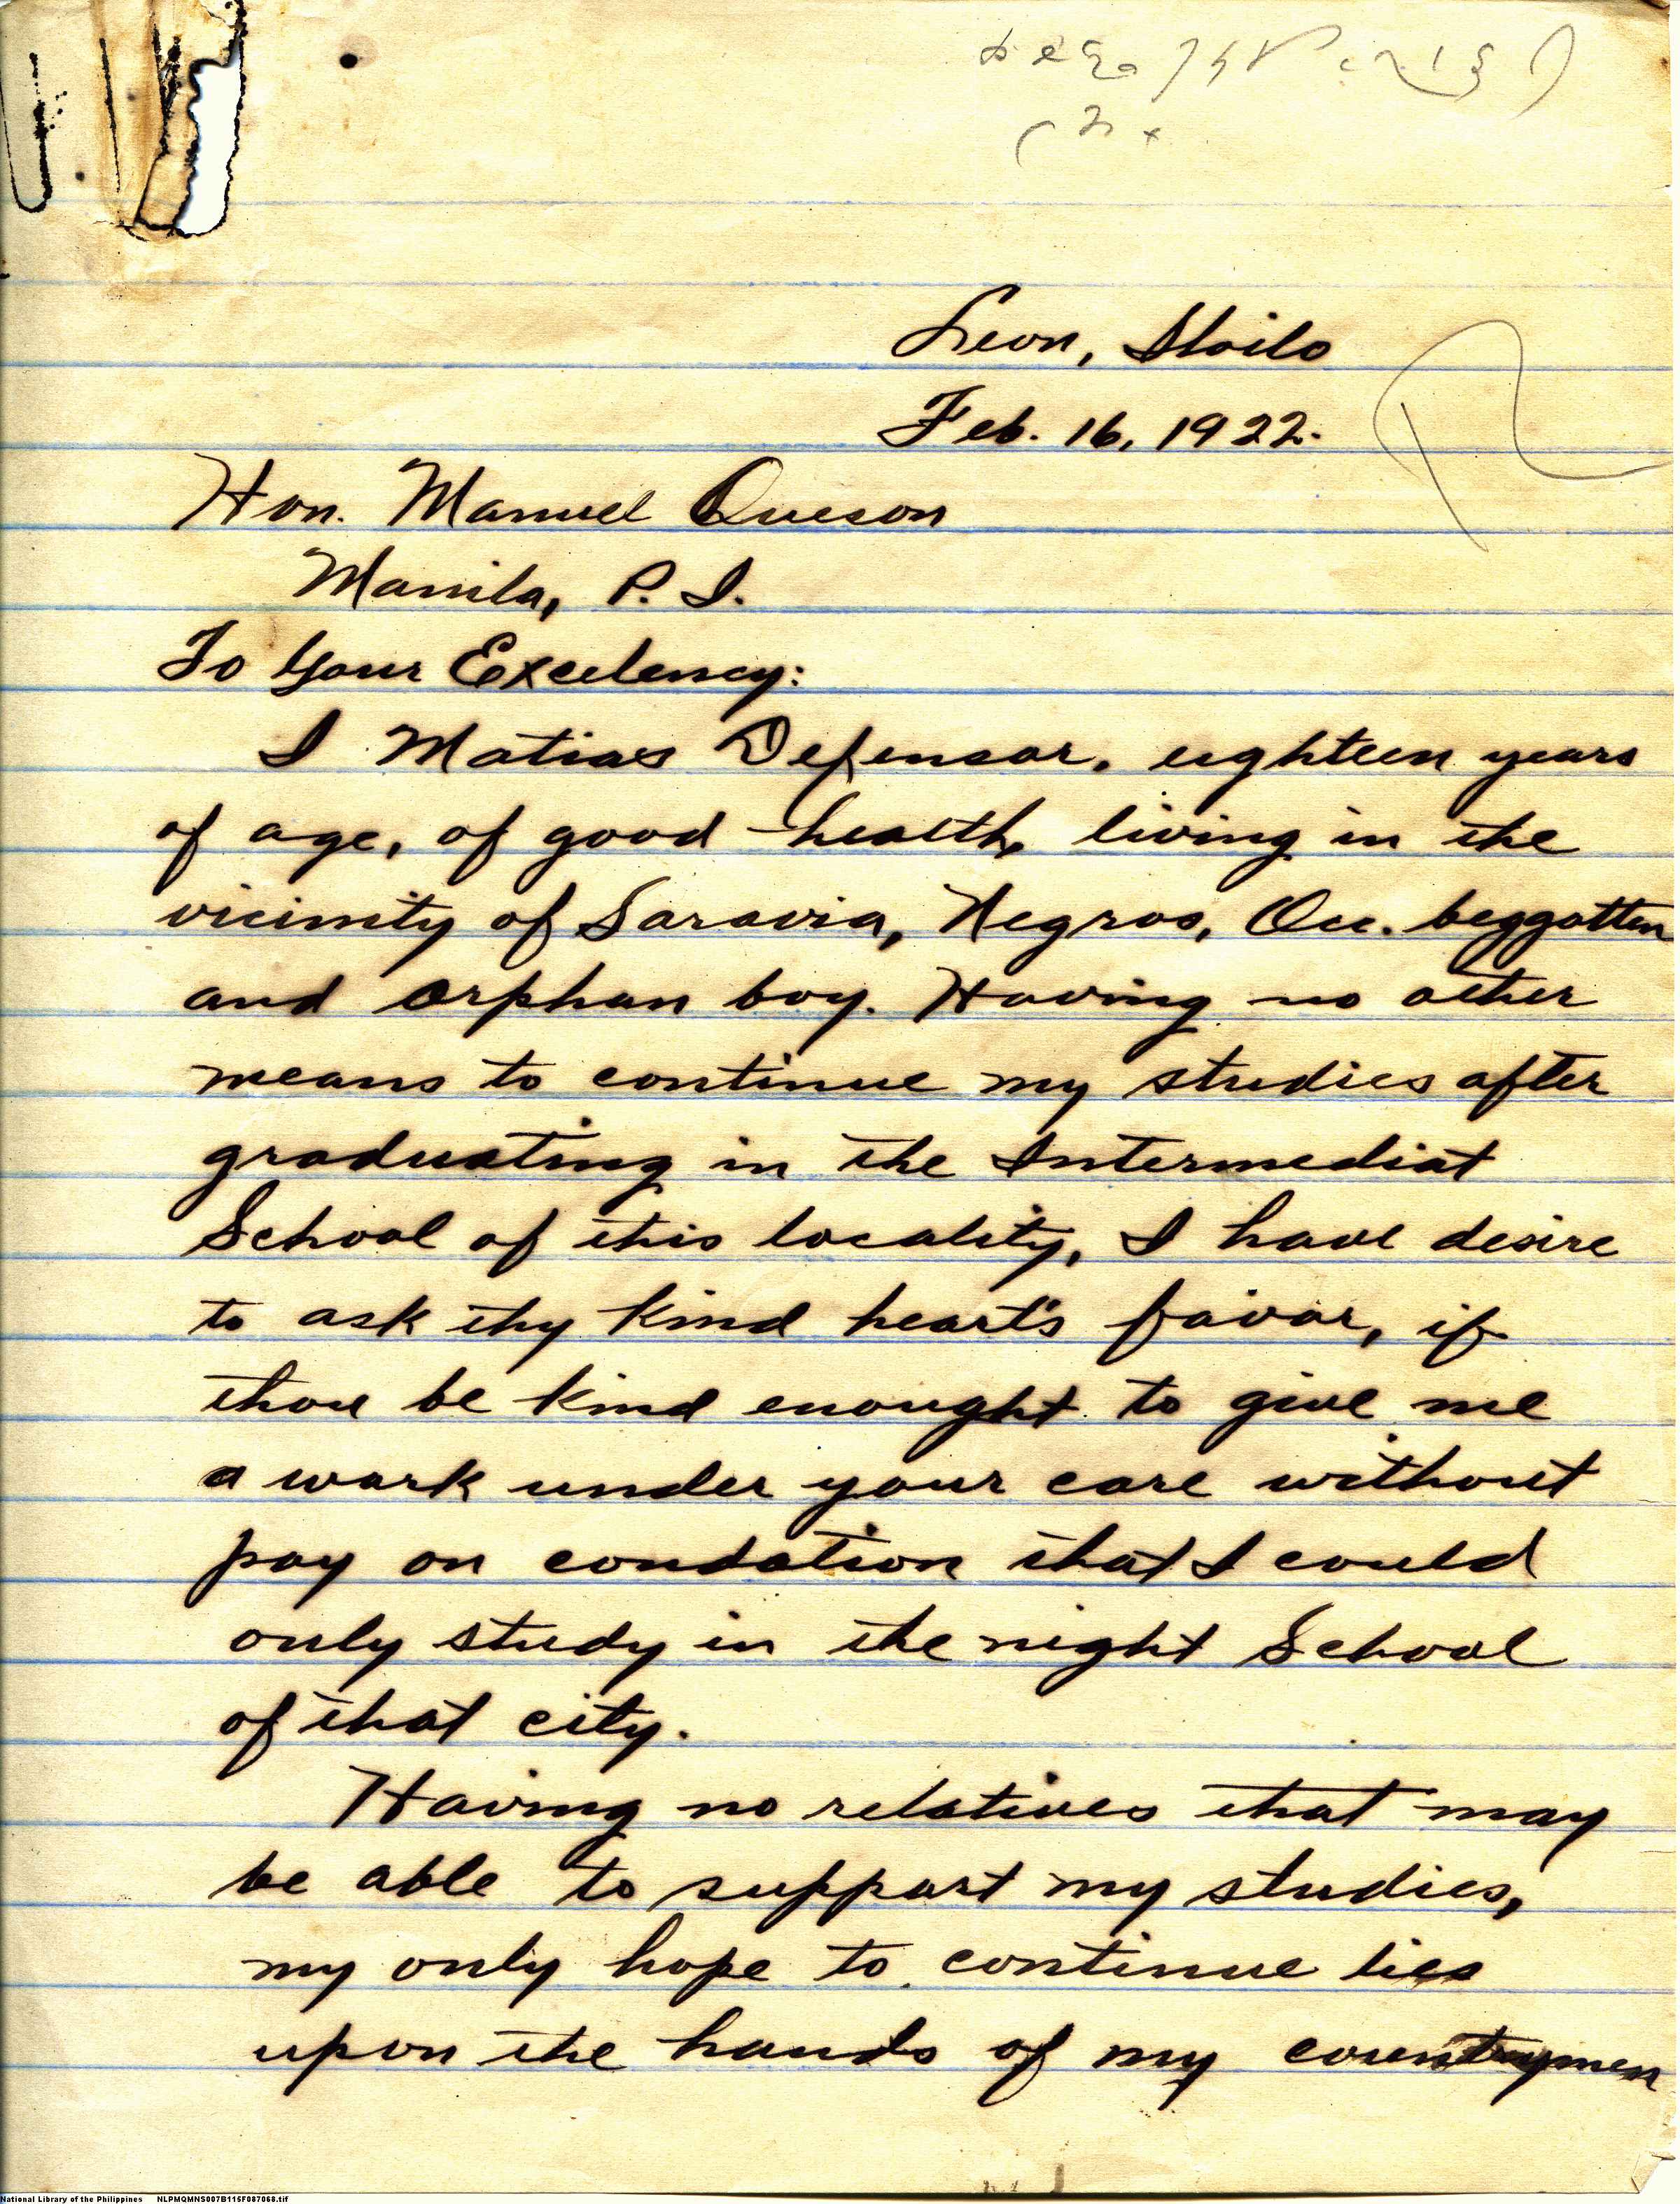 Leon, Iloilo
Feb. 16, 1922.
Hon. Manuel Queson
Manila, P. I.
To Your Excelency:
I Matias Defensor, eighteen years
of age, of good health, living in the
vicinity of Saravia, Negros, Occ. beggotten
and orphan boy. Having no other
means to continue my studies after
graduating in the Intermediat
School of this locality, I have desire
to ask thy kind heart's favor, if
thou be kind enought to give me
a work under your care without
pay on condation that I could
only study in the night School
of that city.
Having no relatives that may
be able to support my studies,
my only hope to continue lies
upon the hands of my countrymen
National Library of the Philippines NLPMQMNS007B115F087068.tif